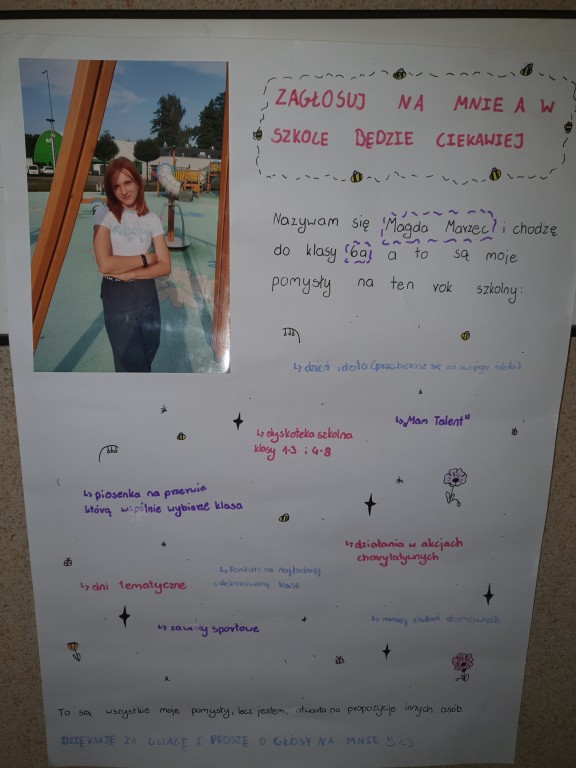 ZAGŁOSUJ NA MNIE A W
SZKOLE BĘDZIE CIEKAWIEJ
Nazywam się Magda Marzec i chodzę
do klasy 6a a to są moje
pomysły na ten rok szkolny:
↳ dzień idola (przebierasz się za swojego idola)
↳ „Mam Talent"
↳ dyskoteka szkolna
klasy 1-3 i 4-8
↳ piosenka na przerwie
którą wspólnie wybierze klasa
↳ działania w akcjach
charytatywnych
↳ konkurs na najładniej
udekorowaną klasę
↳ dni tematyczne
↳ mniej zadań domowych
↳ zawody sportowe
To są wszystkie moje pomysły, lecz jestem, otwarta na propozycje innych osób.
DZIĘKUJĘ ZA UWAGĘ I PROSZĘ O GŁOSY NA MNIE